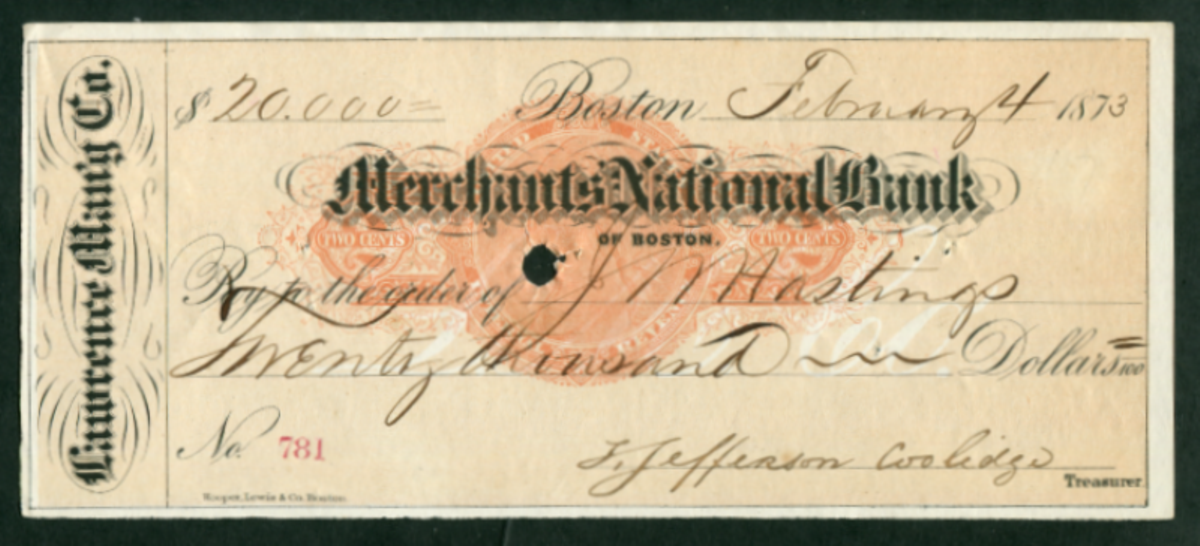 Lawrence Man'g Co.
$ 20.000= Boston February 4 1873
Merchants National Bank
OF BOSTON.
TWO CENTS TWO CENTS
Pay to the order of J M Hastings
Twenty thousand Dollars
No. 781
T. Jefferson Coolidge
Treasurer.
Hooper, Lewis & Co. Boston